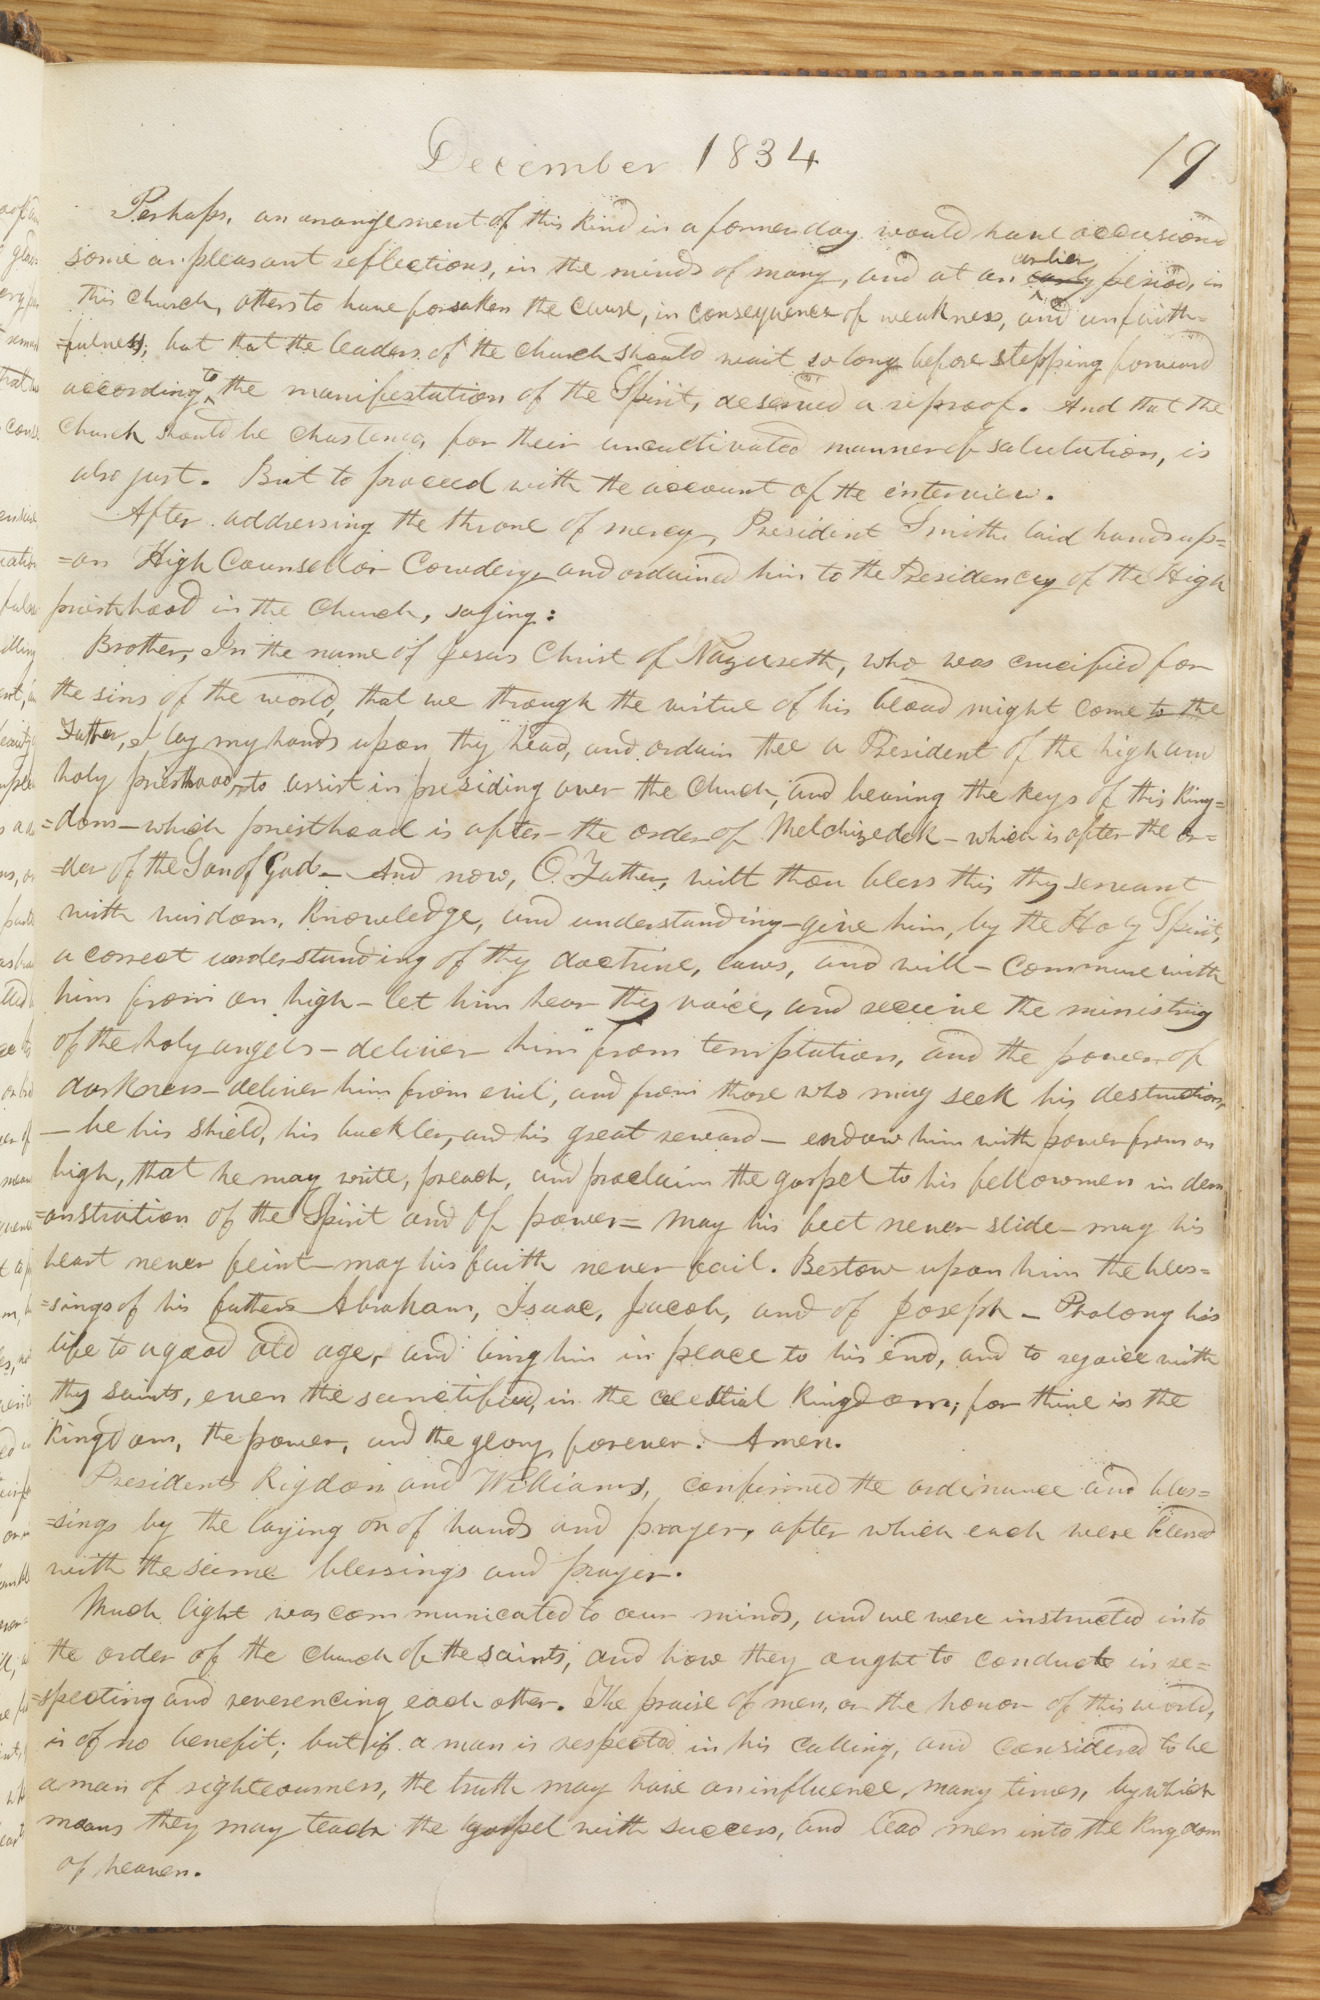 December 1834
19
Perhaps, an arrangement of this kind in a former day would have occasioned
some unpleasant reflections, in the minds of many, and at an earlier period, in
this church, others to have forsaken the cause, in consequence of weakness, and unfaith=
=fulness; but that the leaders of the church should wait so long before stepping forward
according to the manifestation of the Spirit, deserved a reproof. And that the
Church should be chastened, for their uncultivated manner of salutation, is
also just. But to proceed with the account of the interview.
After addressing the throne of mercy, President Smith laid hands up=
=on High Counsellor Cowdery, and ordained him to the Presidency of the High
priesthood in the Church, saying:
Brother, In the name of Jesus Christ of Nazareth, who was crucified for
the sins of the world, that we through the virtue of his blood might come to the
Father, I lay my hands upon thy head, and ordain thee a President of the high and
holy priesthood, to assist in presiding over the Church, and bearing the keys of this King=
=dom—which priesthood is after—the order of Melchizedek—which is after the or=
=der of the Son of God— And now, O Father, wilt thou bless this thy servant
with wisdom, knowledge, and understanding—give him, by the Holy Spirit,
a correct understanding of thy doctrine, laws, and will—Commune with
him from on high—let him hear thy voice, and receive the ministring
of the holy angels—deliver him from temptation, and the power of
darkness—deliver him from evil, and from those who may seek his destruction,
—be his shield, his buckler, and his great reward—endow him with power from on
high, that he may write, preach, and proclaim the gospel to his fellowmen in dem
=onstration of the Spirit and of power= may his feet never slide—may his
heart never feint—may his faith never fail. Bestow upon him the bles=
=sings of his fathers Abraham, Isaac, Jacob, and of Joseph — Prolong his
life to a good old age, and bring him in peace to his end, and to rejoice with
thy saints, even the sanctified, in the celestial kingdom; for thine is the
kingdom, the power, and the glory, forever. Amen.
Presidents Rigdon and Williams, confirmed the ordinance and bles=
=sings by the laying on of hands and prayer, after which each were blessed
with the same blessings and prayer.
Much light was communicated to our minds, and we were instructed into
the order of the Church of the saints, and how they ought to conduct in re=
=specting and reverencing each other. The praise of men, or the honor of this world,
is of no benefit; but if a man is respected in his calling, and considered to be
a man of righteousness, the truth may have an influence, many times, by which
means they may teach the gospel with success, and lead men into the kingdom
of heaven.